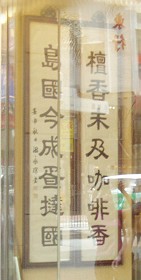 檀香未及咖啡香
島國今成蛋撻國